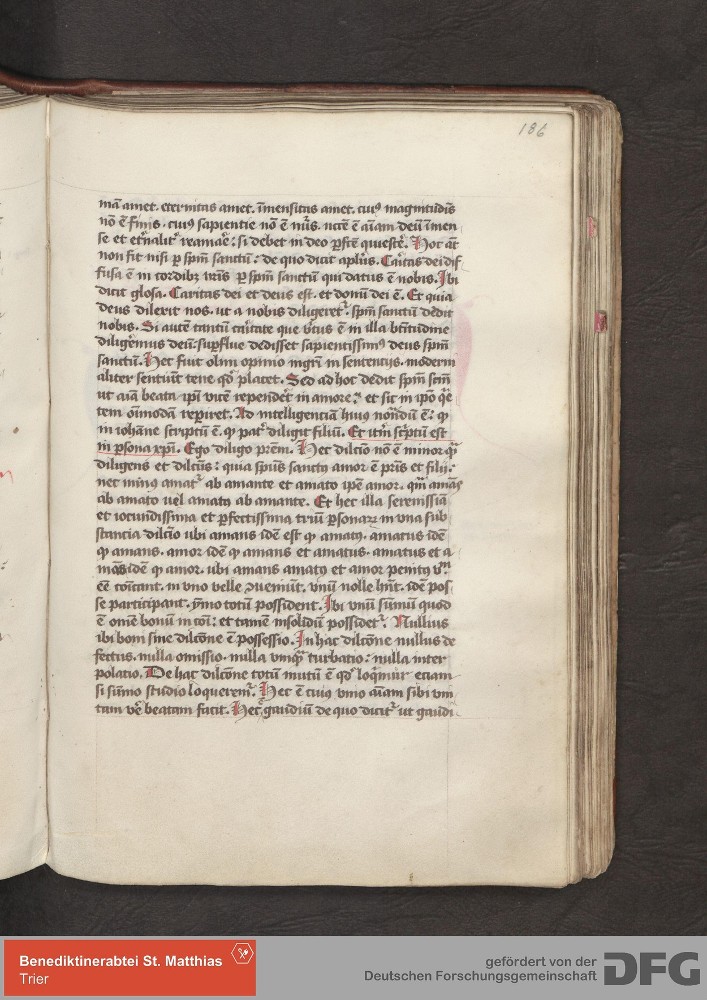 186
mā amet. eternitas amet. īmensitas amet. cuiꝰ magnitudīs
nō ē finis. cuiꝰ sapientie nō ē nūs. ncē ē aīam deū īmen
se et etnalit reamaē: si debet in deo pfcē quiescē. Hoc āt
non fit nisi p spm sanctū: de quo dicit aplus. Caritas dei dif
fusa ē in cordibꝫ nris p spm sanctū qui datus ē nobis. Ibi
dicit glosa. Caritas dei et deus est. et donū dei ē. Et quia
deus dilexit nos. ut a nobis diligeret. spm sanctū dedit
nobis. Si autē tantū caritate que vtus ē in illa btitudine
diligemus deū: supflue dedisset sapientissimꝰ deus spm
sanctū. Hec fuit olim opinio mgri in sentencijs. moderni
aliter sentiūt tene qd placet. Sed ad hoc dedit spm scm
ut aīa beata ipi vicē rependet in amore: et sic in ipo qe
tem oīmodam repiret. Ad intelligenciam huiꝰ nondū ē: ꝙ
in iohāne scriptū ē. ꝙ pat diligit filiū. Et itm scptū est
in psona xpi. Ego diligo prēm. Hec dilcio nō ē minor qm
diligens et dilcus: quia spūs sanctꝰ amor ē pris et filij.
nec minꝰ amat ab amante et amato ipe amor. qm amās
ab amato uel amatꝰ ab amante. Et hec illa serenissīa
et iocundissima et pfectissima triū psonaꝝ in vna sub
stancia dilcio ubi amans idē est ꝙ amatꝰ. amatus idē
ꝙ amans. amor idē ꝙ amans et amatus. amatus et a
mās idē ꝙ amor. ubi amans amatꝰ et amor penitꝰ vm
eē coīcant. in vno velle ꝯueniūt. vnū nolle hnt. idē pos
se participant. ymo totū possident. Ibi vnū sūmū quod
ē omē bonū in coī: et tamē insolidū possidet. Nullius
ibi boni sine dilcōne ē possessio. In hac dilcōne nullus de
fectus. nulla omissio. nulla vmqm turbatio: nulla inter
polatio. De hac dilcōne totū mutū ē qd loqmur eciam
si sūmo studio loqueremr. Hec ē cuiꝰ vnio aīam sibi vni
tam vē beatam facit. Hec gaudiū de quo dicit ut gaudi
Benediktinerabtei St. Matthias
Trier
gefördert von der
Deutschen Forschungsgemeinschaft
DFG